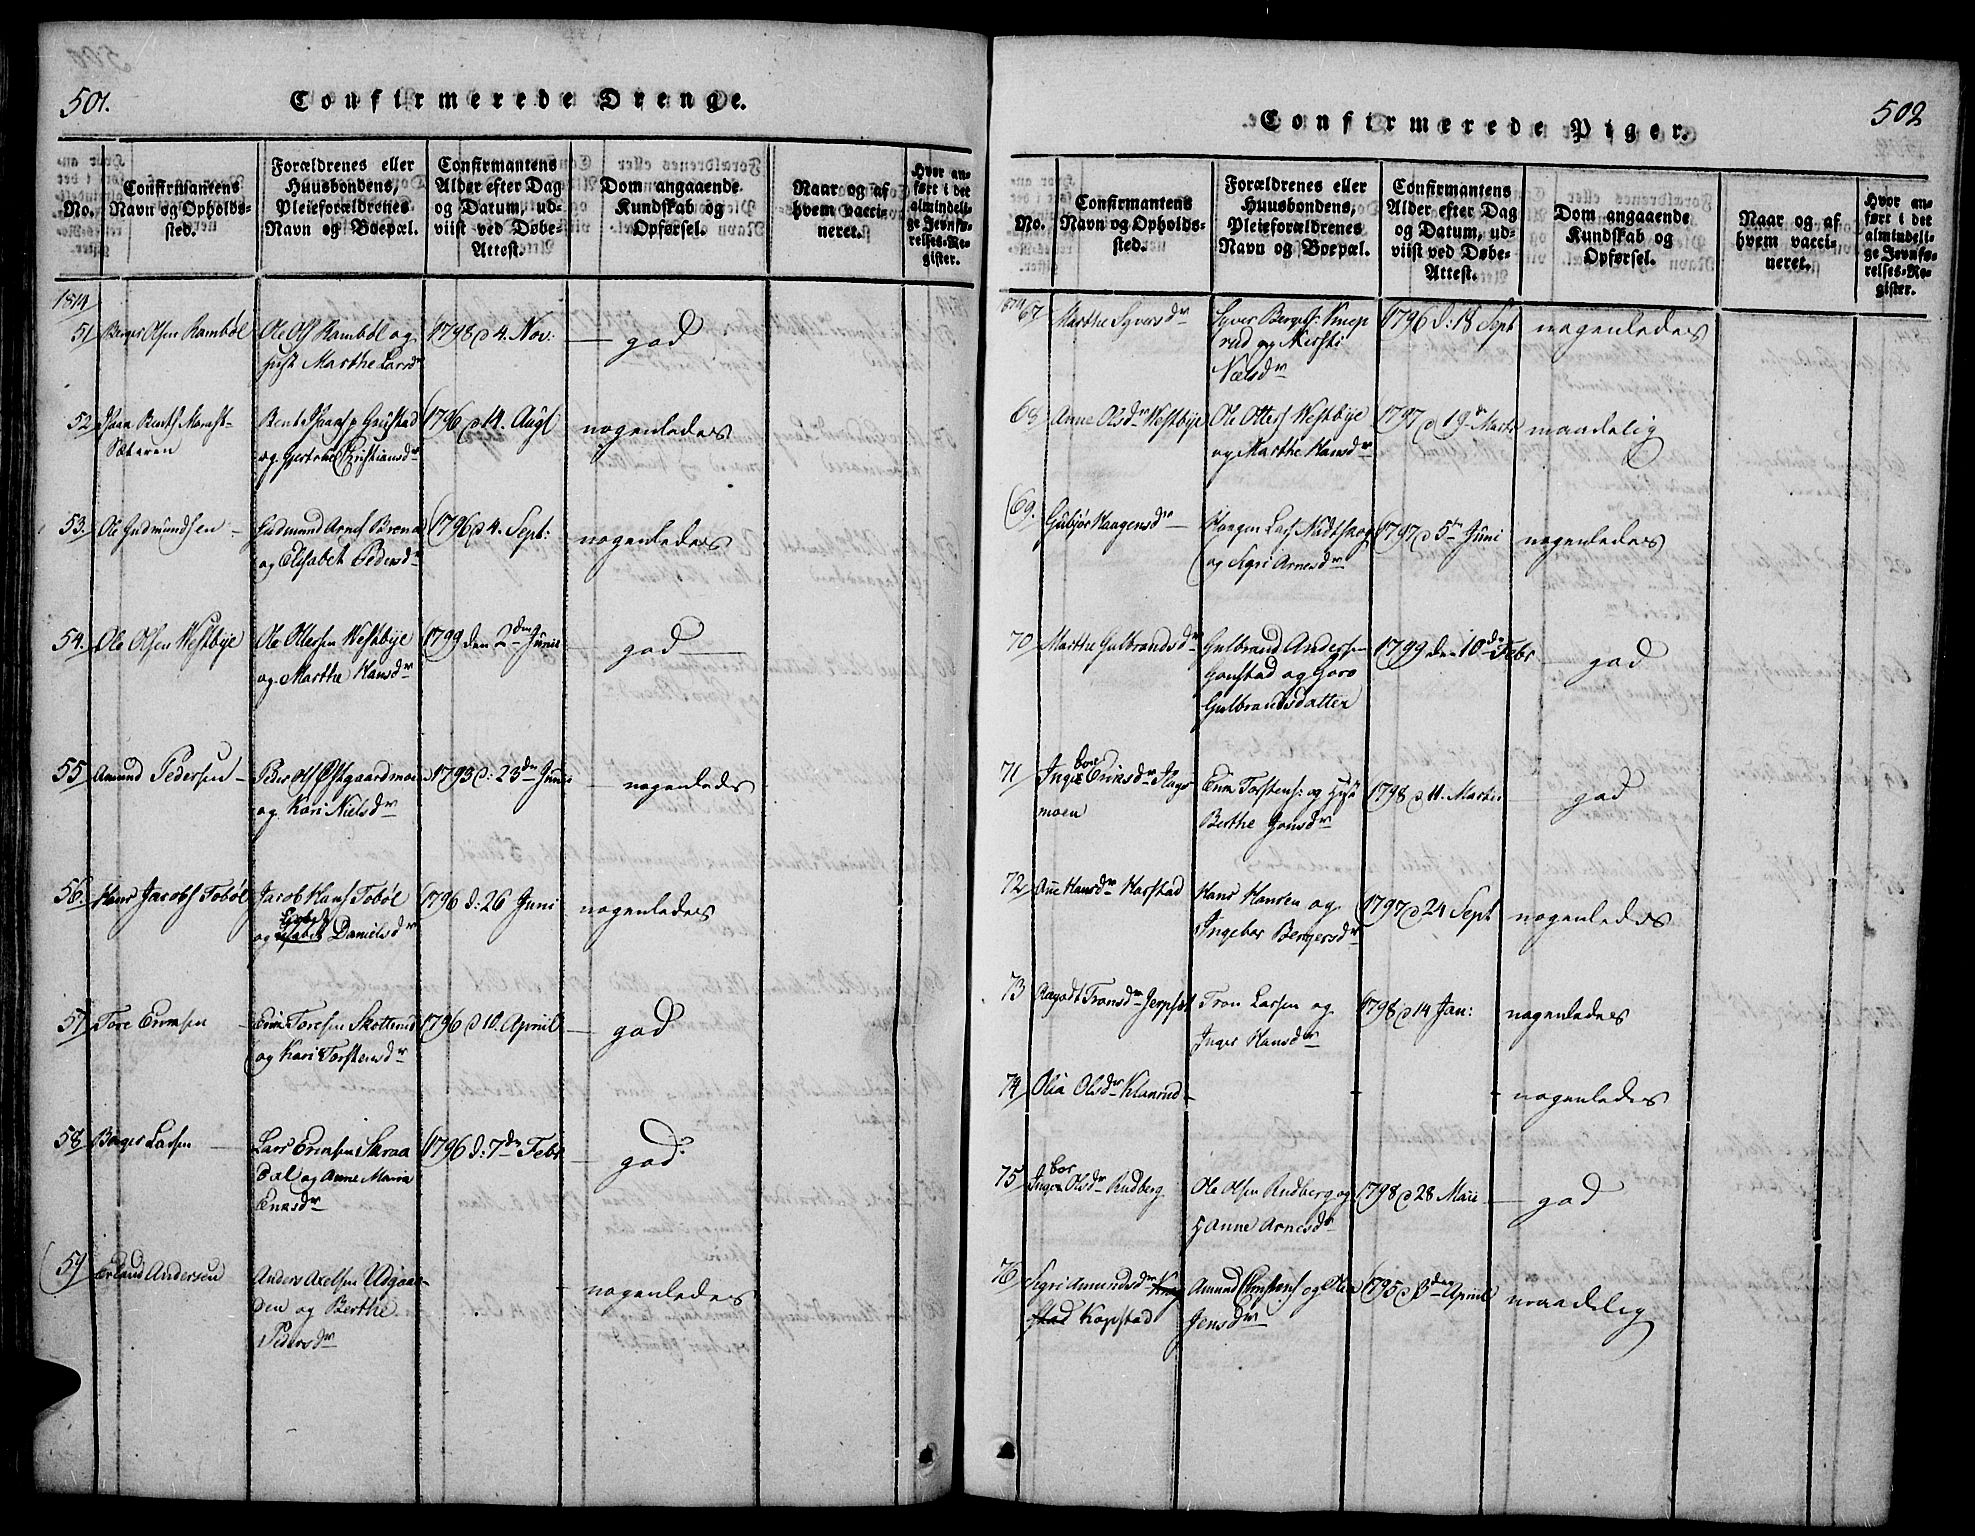 501.
Confirmerede Drenge.
No.
Confirmantens
Navn og Opholds-
sted.
Forældrenes eller
Huusbondens,
Pleieforældrenes
Navn og Boepæl.
Confirmantens
Alder efter Dag
og Datum, ud-
viist ved Døbe-
Attest.
Dom angaaende
Kundskab og
Opførsel.
Naar og af
hvem vacci-
neret.
Hvor an-
ført i det
almindeli-
ge Jevnfø-
relses-Re-
gister.
1814
51 Berger Olsen Ramböl
Ole Ols Ramböl og
Marthe Larsdr
1798 d 4. Nov:
god
52
Sæteren
og Christiansdr
1796 d 14. Augl
nogenledes
53. Ole Gudmundsen
Gudmund Arnes Brena
og Elisabet Pedersdr
1796 d 4. Sept:
nogenledes
54. Ole Olsen Westbye
Ole Ottersen Westbye
og Marthe Hansdr
1799 den 2den Junii
god
55 Amund Pedersen
Peder Ols Østgaardmoe
og Kari Nielsdr
1793 d: 23de Junii
nogenleds
56. Hans Jacobs Toböl
Jacob Hans Toböl
og Danielsdr
1796 d: 26 Juni
nogenledes
57 Tore Ericsen
Eric Toresen Skotterud
og Kari Torstensdr
1796 d 10. April
god
58 Børger Larsen
Lars Ericsen Skraa
dal og Anne Maria
Ericsdr
1796 d: 7de Febr
god
59 Erland Andersen
Anders Axelsen Udgaar-
den og Berthe
Pedersdr
nogenledes
502
Confirmerede Piger.
No.
Confirmantens
Navn og Opholds-
sted.
Forældrenes eller
Huusbondens,
Pleieforældrenes
Navn og Boepæl.
Confirmantens
Alder efter Dag
og Datum, ud-
viist ved Døbe-
Attest.
Dom angaaende
Kundskab og
Opførsel.
Naar og af
hvem vacci-
neret.
Hvor an-
ført i det
almindeli-
ge Jevnfø-
relses-Re-
gister.
1814 67 Marthe Syversdr
Syver Bergers: Knap
rud og Kersti
Nielsdr
1796 d: 18 Sept
nogenledes
68 Anne Olsdr Westbye
Ole Otters Westbye
og Marthe Hansdr
1797 d 19de Marti
maadelig
69. Gubjør Haagensdr
Haagen Lars Nadtskog
og Sigri Arnesdr
1797 d 5te Juni
nogenledes
70 Marthe Gulbrandsdr
Gulbrand Andersen
Gonstad og Goro
Gulbrandsdatter
1799 den 10de Febr
god
71 Ingebor Ericsdr Hags
moen
Eric Torstens: og
Berthe Jonsdr
1798 d 11. Martii
god
72 Ane Hansdr Harstad
Hans Hansen og
Ingebor Bergersdr
1797 d 24 Sept
nogenledes
73 Aagodt Tronsdr Jerpset
Tron Larsen og
Inger Hansdr
1798 d 14 Jan:
nogenledes
74 Olia Olsdr Klanrud
nogenledes
75 Ingebor Olsdr Rudberg
Ole Olsen Rudberg og
Anne Arnesdr
1798 d 28 Maii
god
76 Sigri Amundsdr
Kopstad
Amund og
Jensdr
1795 d 3den April
maadelig